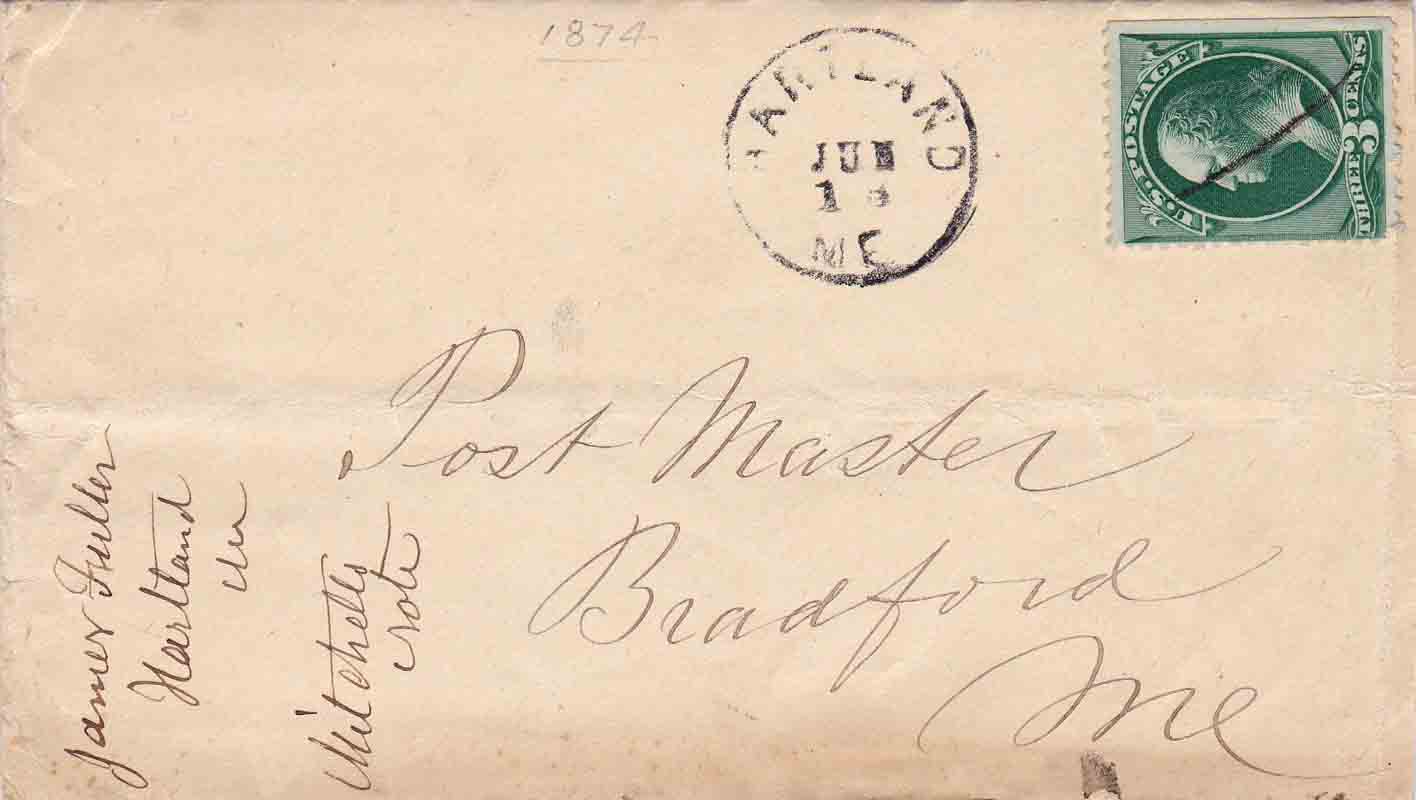 1874
HARTLAND
JUN
ME
U.S. POSTAGE
3
THREE CENTS
Post Master
Bradford
Me
James Fuller
Hartland
Me
Mitchells
Note